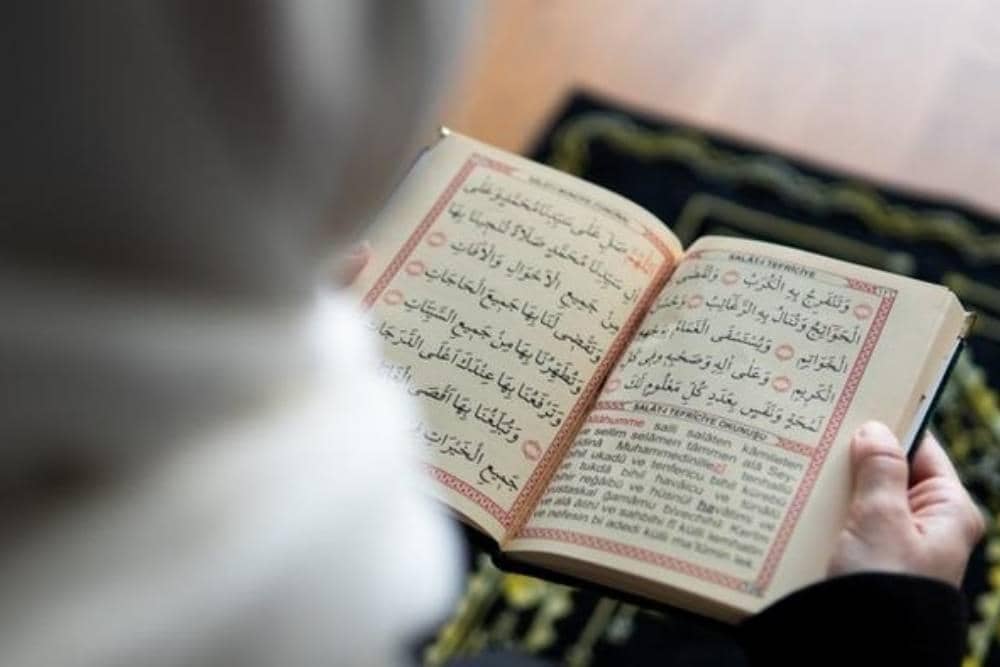 SALÂT-I TEFRİCİYE
وَتَنْفَرِجُ بِهِ الْكُرَبُ وَتُقْضَى
الْحَوَائِجُ وَتُنَالُ بِهِ الرَّغَائِبُ وَحُسْنُ
الْخَوَاتِمِ وَيُسْتَسْقَى الْغَمَامُ بِوَجْهِهِ
الْكَرِيمِ وَعَلَى اٰلِهِ وَصَحْبِهِ فِى كُلِّ
لَمْحَةٍ وَنَفَسٍ بِعَدَدِ كُلِّ مَعْلُومٍ لَكَ
SALÂT-I TEFRİCİYE OKUNUŞU
Allâhumme salli salâten kâmileten
ve sellim selâmen tâmmen alâ Sey-
Muhammedinillezî tenhallu
bihil ukadü ve tenfericu bihil kürebü
ve tukdâ bihil havâicu ve tünâlü
bihir reğâibü ve hüsnül havâtimi ve
yusteskal ğamâmu bivechihil Kerîm
ve alâ âlihî ve sahbihî fî külli lemhatin
ve nefesin bi adedi külli ma'lûmin lek.
صَلِّ عَلَى سَيِّدِنَا مُحَمَّدٍ وَعَلَى
اٰلِ سَيِّدِنَا مُحَمَّدٍ صَلَاةً تُنْجِينَا بِهَا
مِنْ جَمِيعِ الْاَحْوَالِ وَالْاٰفَاتِ
وَتَقْضِى لَنَا بِهَا جَمِيعَ الْحَاجَاتِ
وَتُطَهِّرُنَا بِهَا مِنْ جَمِيعِ السَّيِّئَاتِ
وَتَرْفَعُنَا بِهَا عِنْدَكَ اَعْلَى الدَّرَجَاتِ
وَتُبَلِّغُنَا بِهَا اَقْصَى
جَمِيعِ الْخَيْرَاتِ